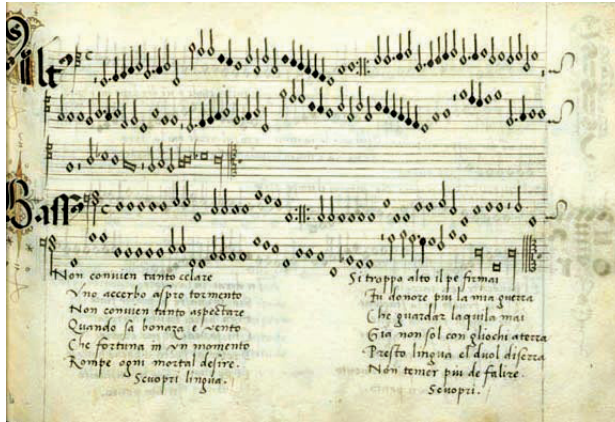 Alt⁹
Bass⁹
Non convien tanto celare
Vno accerbo aspro tormento
Non convien tanto aspectare
Quando fa bonaza e vento
Che fortuna in vn momento
Rompe ogni mortal desire.
Scuopri lingua.
Si troppo alto il pe firmai
Fu donore piu la mia guerra
Che guardar laquila mai
Gia non sol con gliochi aterra
Presto lingua el duol diserra
Non temer piu de falire.
Scuopri.